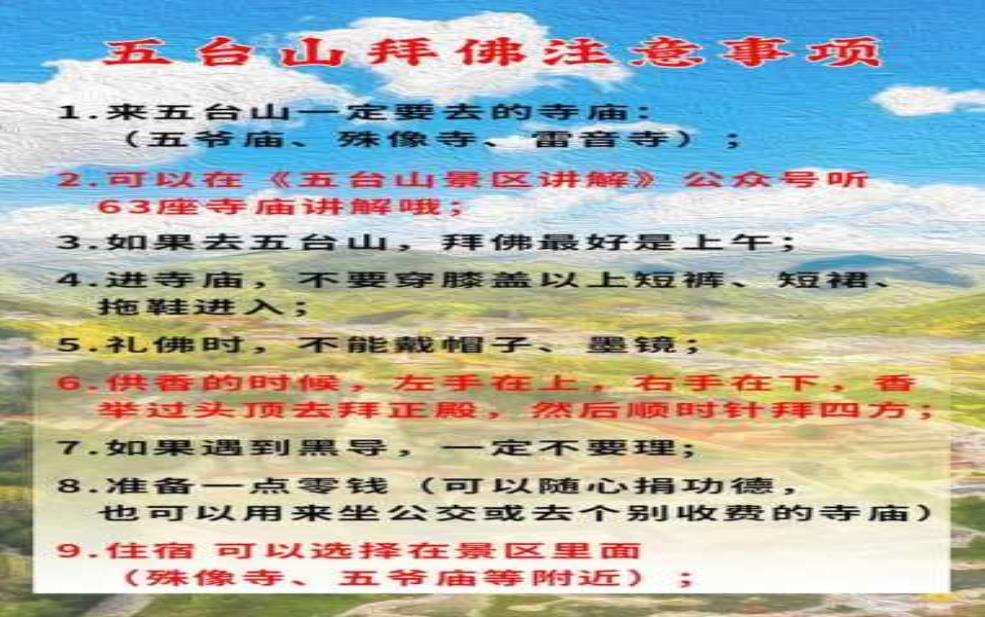 五台山拜佛注意事项
1.来五台山一定要去的寺庙：
（五爷庙、殊像寺、雷音寺）；
2.可以在《五台山景区讲解》公众号听
63座寺庙讲解哦；
3.如果去五台山，拜佛最好是上午；
4.进寺庙，不要穿膝盖以上短裤、短裙、
拖鞋进入；
5.礼佛时，不能戴帽子、墨镜；
6.供香的时候，左手在上，右手在下，香
举过头顶去拜正殿，然后顺时针拜四方；
7.如果遇到黑导，一定不要理；
8.准备一点零钱（可以随心捐功德，
也可以用来坐公交或去个别收费的寺庙）
9.住宿 可以选择在景区里面
（殊像寺、五爷庙等附近）；